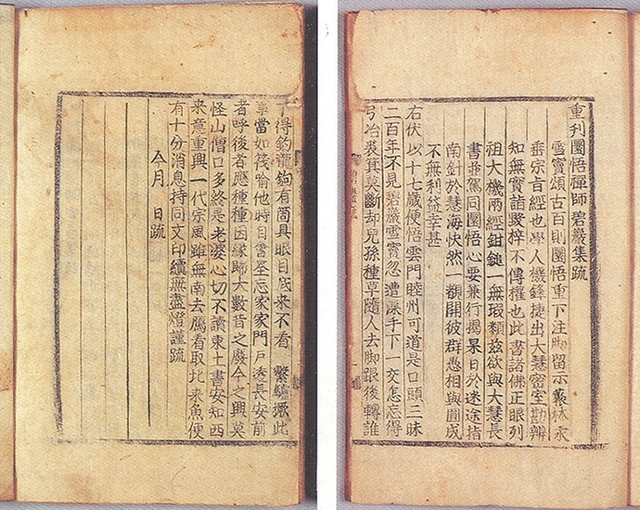 重刊圜悟禪師碧巖集疏
雪竇頌古百則圜悟重下注脚留示叢林永
垂宗旨經也學人機鋒捷出大慧密室勘辨
知無實詣毀梓不傳權也此書諸佛正眼列
祖大機兩經鉗鎚一無瑕類玆欲與大慧長
書並駕同圜悟心要兼行揭杲日於迷途指
南針於慧海快然一覩開彼群愚相與圓成
不無利益幸甚
右伏以十七歲便悟雲門睦州可道是口頭三昧
二百年不見碧巖雪竇忽遭手下一交怎忘得
弓冶裘箕莫斷却兒孫種草隨人去脚跟後轉誰
了得釣龍鉤有箇具眼目底來不看繫驢橛此
事當如筏喻他時自筌忘家家門戶透長安前
者呼後者應種種因緣歸大數昔之廢今之興莫
怪山僧口多終是老婆心切不讀東土書安知西
來意重興一代宗風雖無南去鴈看取北來魚便
有十分消息持同文印續無盡燈謹疏
今月 日疏